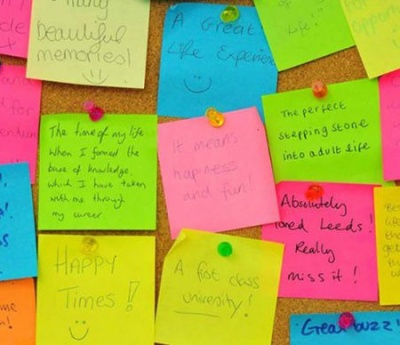 many
beautiful
memories!
A Great
Life Experience
of
Life!
for
opportun
The time of my life
When I formed the
base of knowledge
which I have taken
with me through
my career
It means
happiness
and fun!
The perfect
stepping stone
into adult life
Absolutely
loved Leeds!
Really
miss it!
HAPPY
Times!
A first class
university!
Great buzz!